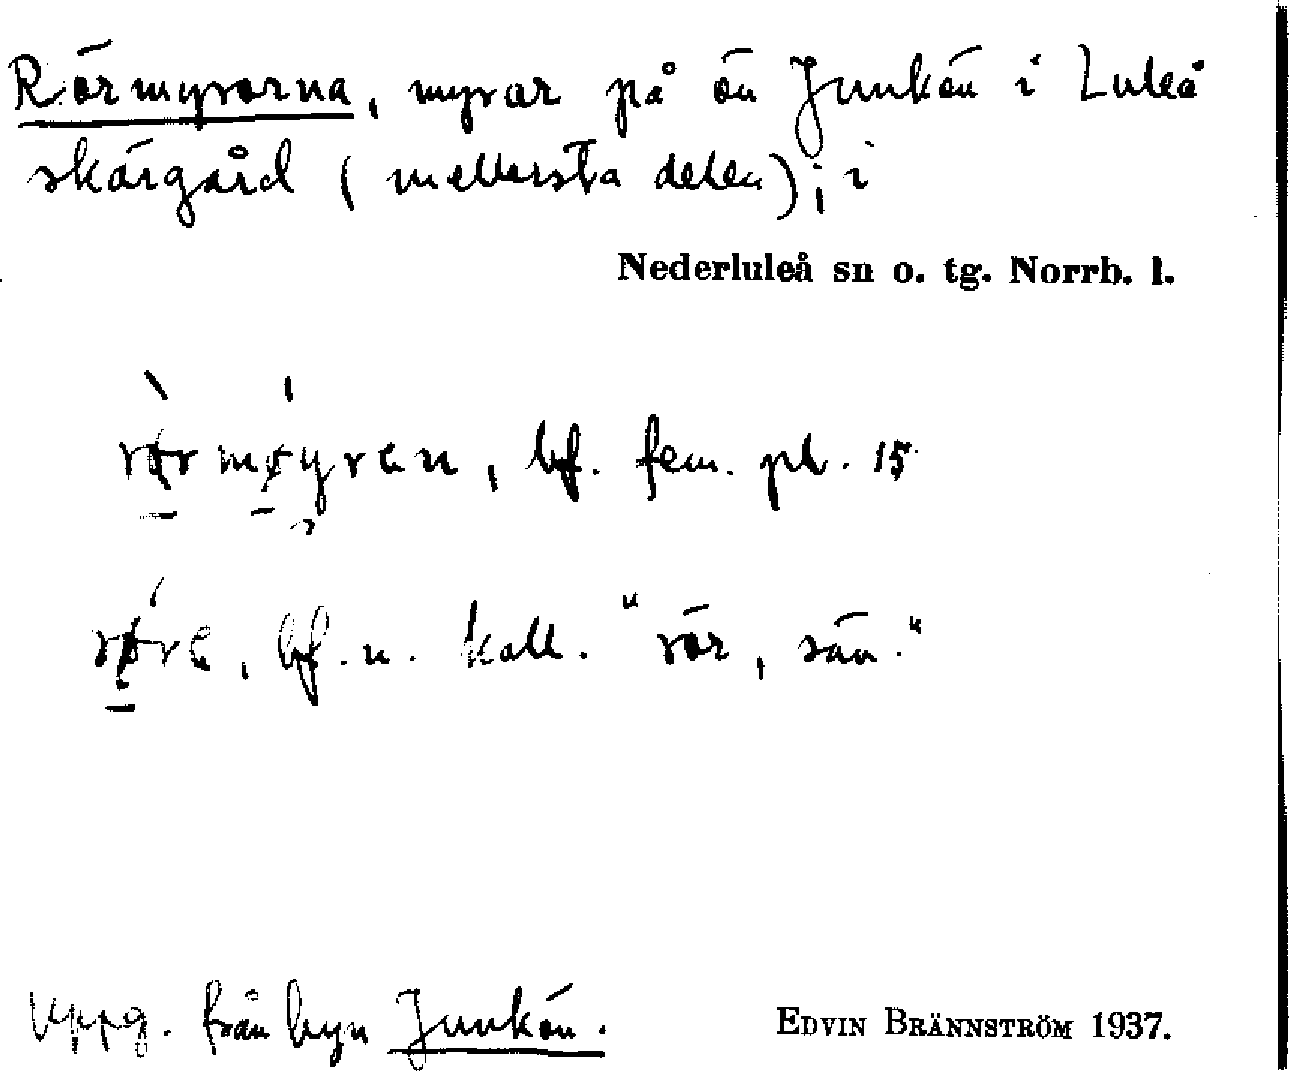 Rörmyrorna, myrar på ön Junkön i Luleå
skärgård (mellersta delen); i
Nederluleå sn o. tg. Norrb. l.
rø̀rmøyrɐn, bf. fem. pl. 15
rǿrɐ, bf. n. koll. "rör, sän."
Uppg. från byn Junkön.
EDVIN BRÄNNSTRÖM 1937.